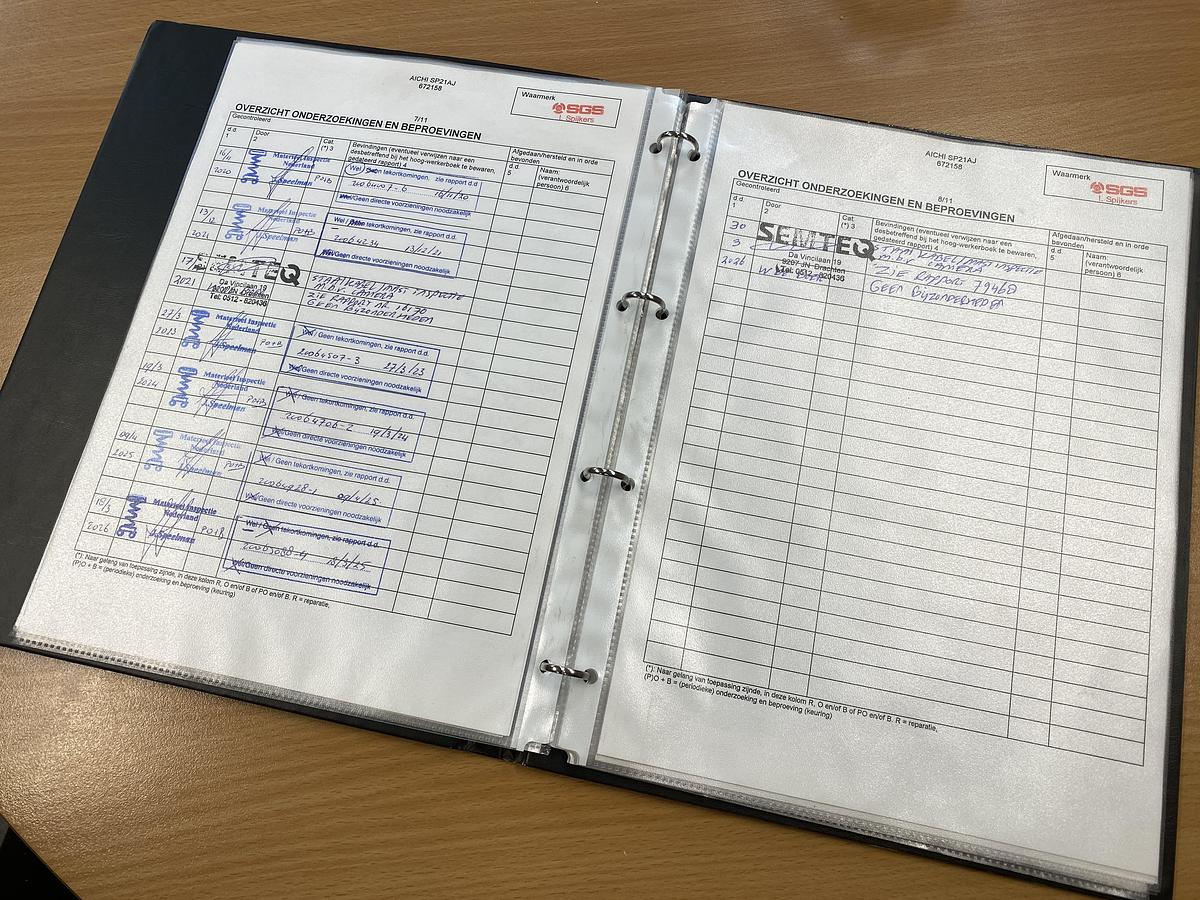 AICHI SP21AJ
672158
Waarmerk
SGS
I. Spijkers
7/11
OVERZICHT ONDERZOEKINGEN EN BEPROEVINGEN
Gecontroleerd
Afgedaan/hersteld en in orde bevonden
d.d. 1
Door 2
Cat. (*) 3
Bevindingen (eventueel verwijzen naar een desbetreffend bij het hoog-werkerboek te bewaren, gedateerd rapport) 4
d.d. 5
Naam: (verantwoordelijk persoon) 6
16/11 2020
Materieel Inspectie Nederland
J.Speelman
PO+B
Wel / Geen tekortkomingen, zie rapport d.d.
16/11/20
Wel/Geen directe voorzieningen noodzakelijk
13/12 2021
Materieel Inspectie Nederland
J.Speelman
PO+B
Wel / Geen tekortkomingen, zie rapport d.d.
13/12/21
Wel/Geen directe voorzieningen noodzakelijk
2021
SEMTEQ
Da Vincilaan 19
Tel: 0512 - 820436
STAALKABEL/MAST INSPECTIE
M.B.V. CAMERA
ZIE RAPPORT NR.
GEEN BYZONDERHEDEN
27/3 2023
Materieel Inspectie Nederland
J.Speelman
PO+B
Wel / Geen tekortkomingen, zie rapport d.d.
20064507-3 27/3/23
Wel/Geen directe voorzieningen noodzakelijk
19/3 2024
Materieel Inspectie Nederland
J.Speelman
PO+B
Wel / Geen tekortkomingen, zie rapport d.d.
20064706-2 19/3/24
Wel/Geen directe voorzieningen noodzakelijk
09/4 2025
Materieel Inspectie Nederland
J.Speelman
PO+B
Wel / Geen tekortkomingen, zie rapport d.d.
20064928-1 09/4/25
Wel/Geen directe voorzieningen noodzakelijk
2026
Materieel Inspectie Nederland
J.Speelman
PO+B
Wel / Geen tekortkomingen, zie rapport d.d.
Wel/Geen directe voorzieningen noodzakelijk
(*): Naar gelang van toepassing zijnde, in deze kolom R, O en/of B of PO en/of B. R = reparatie,
(P)O + B = (periodieke) onderzoeking en beproeving (keuring)
AICHI SP21AJ
672158
Waarmerk
SGS
I. Spijkers
8/11
OVERZICHT ONDERZOEKINGEN EN BEPROEVINGEN
Gecontroleerd
Afgedaan/hersteld en in orde bevonden
d.d. 1
Door 2
Cat. (*) 3
Bevindingen (eventueel verwijzen naar een desbetreffend bij het hoog-werkerboek te bewaren, gedateerd rapport) 4
d.d. 5
Naam: (verantwoordelijk persoon) 6
30
3
2026
SEMTEQ
Da Vincilaan 19
9207 JN Drachten
Tel: 0512 - 820436
STAALKABEL/MAST INSPECTIE
M.B.V. CAMERA
ZIE RAPPORT 79460
GEEN BYZONDERHEDEN
(*): Naar gelang van toepassing zijnde, in deze kolom R, O en/of B of PO en/of B. R = reparatie,
(P)O + B = (periodieke) onderzoeking en beproeving (keuring)